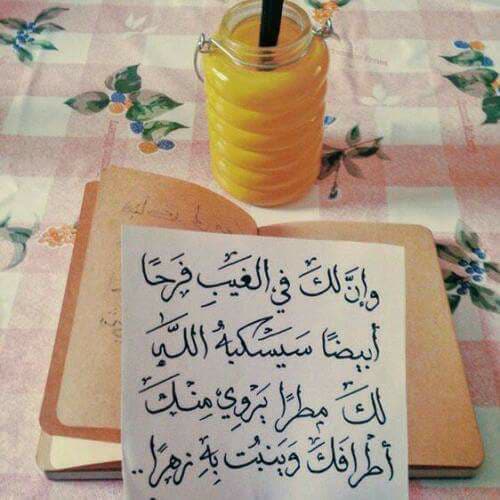 وإنَّ لكَ في الغيبِ فرحًا
أبيضًا سَيَسكبهُ اللَّهُ
لكَ مطرًا يَروِي مِنكَ
أطرافكَ وَينبُت بِهِ زهرًا ..